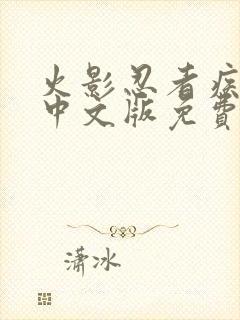 火影忍者疾
中文版免費
潇冰